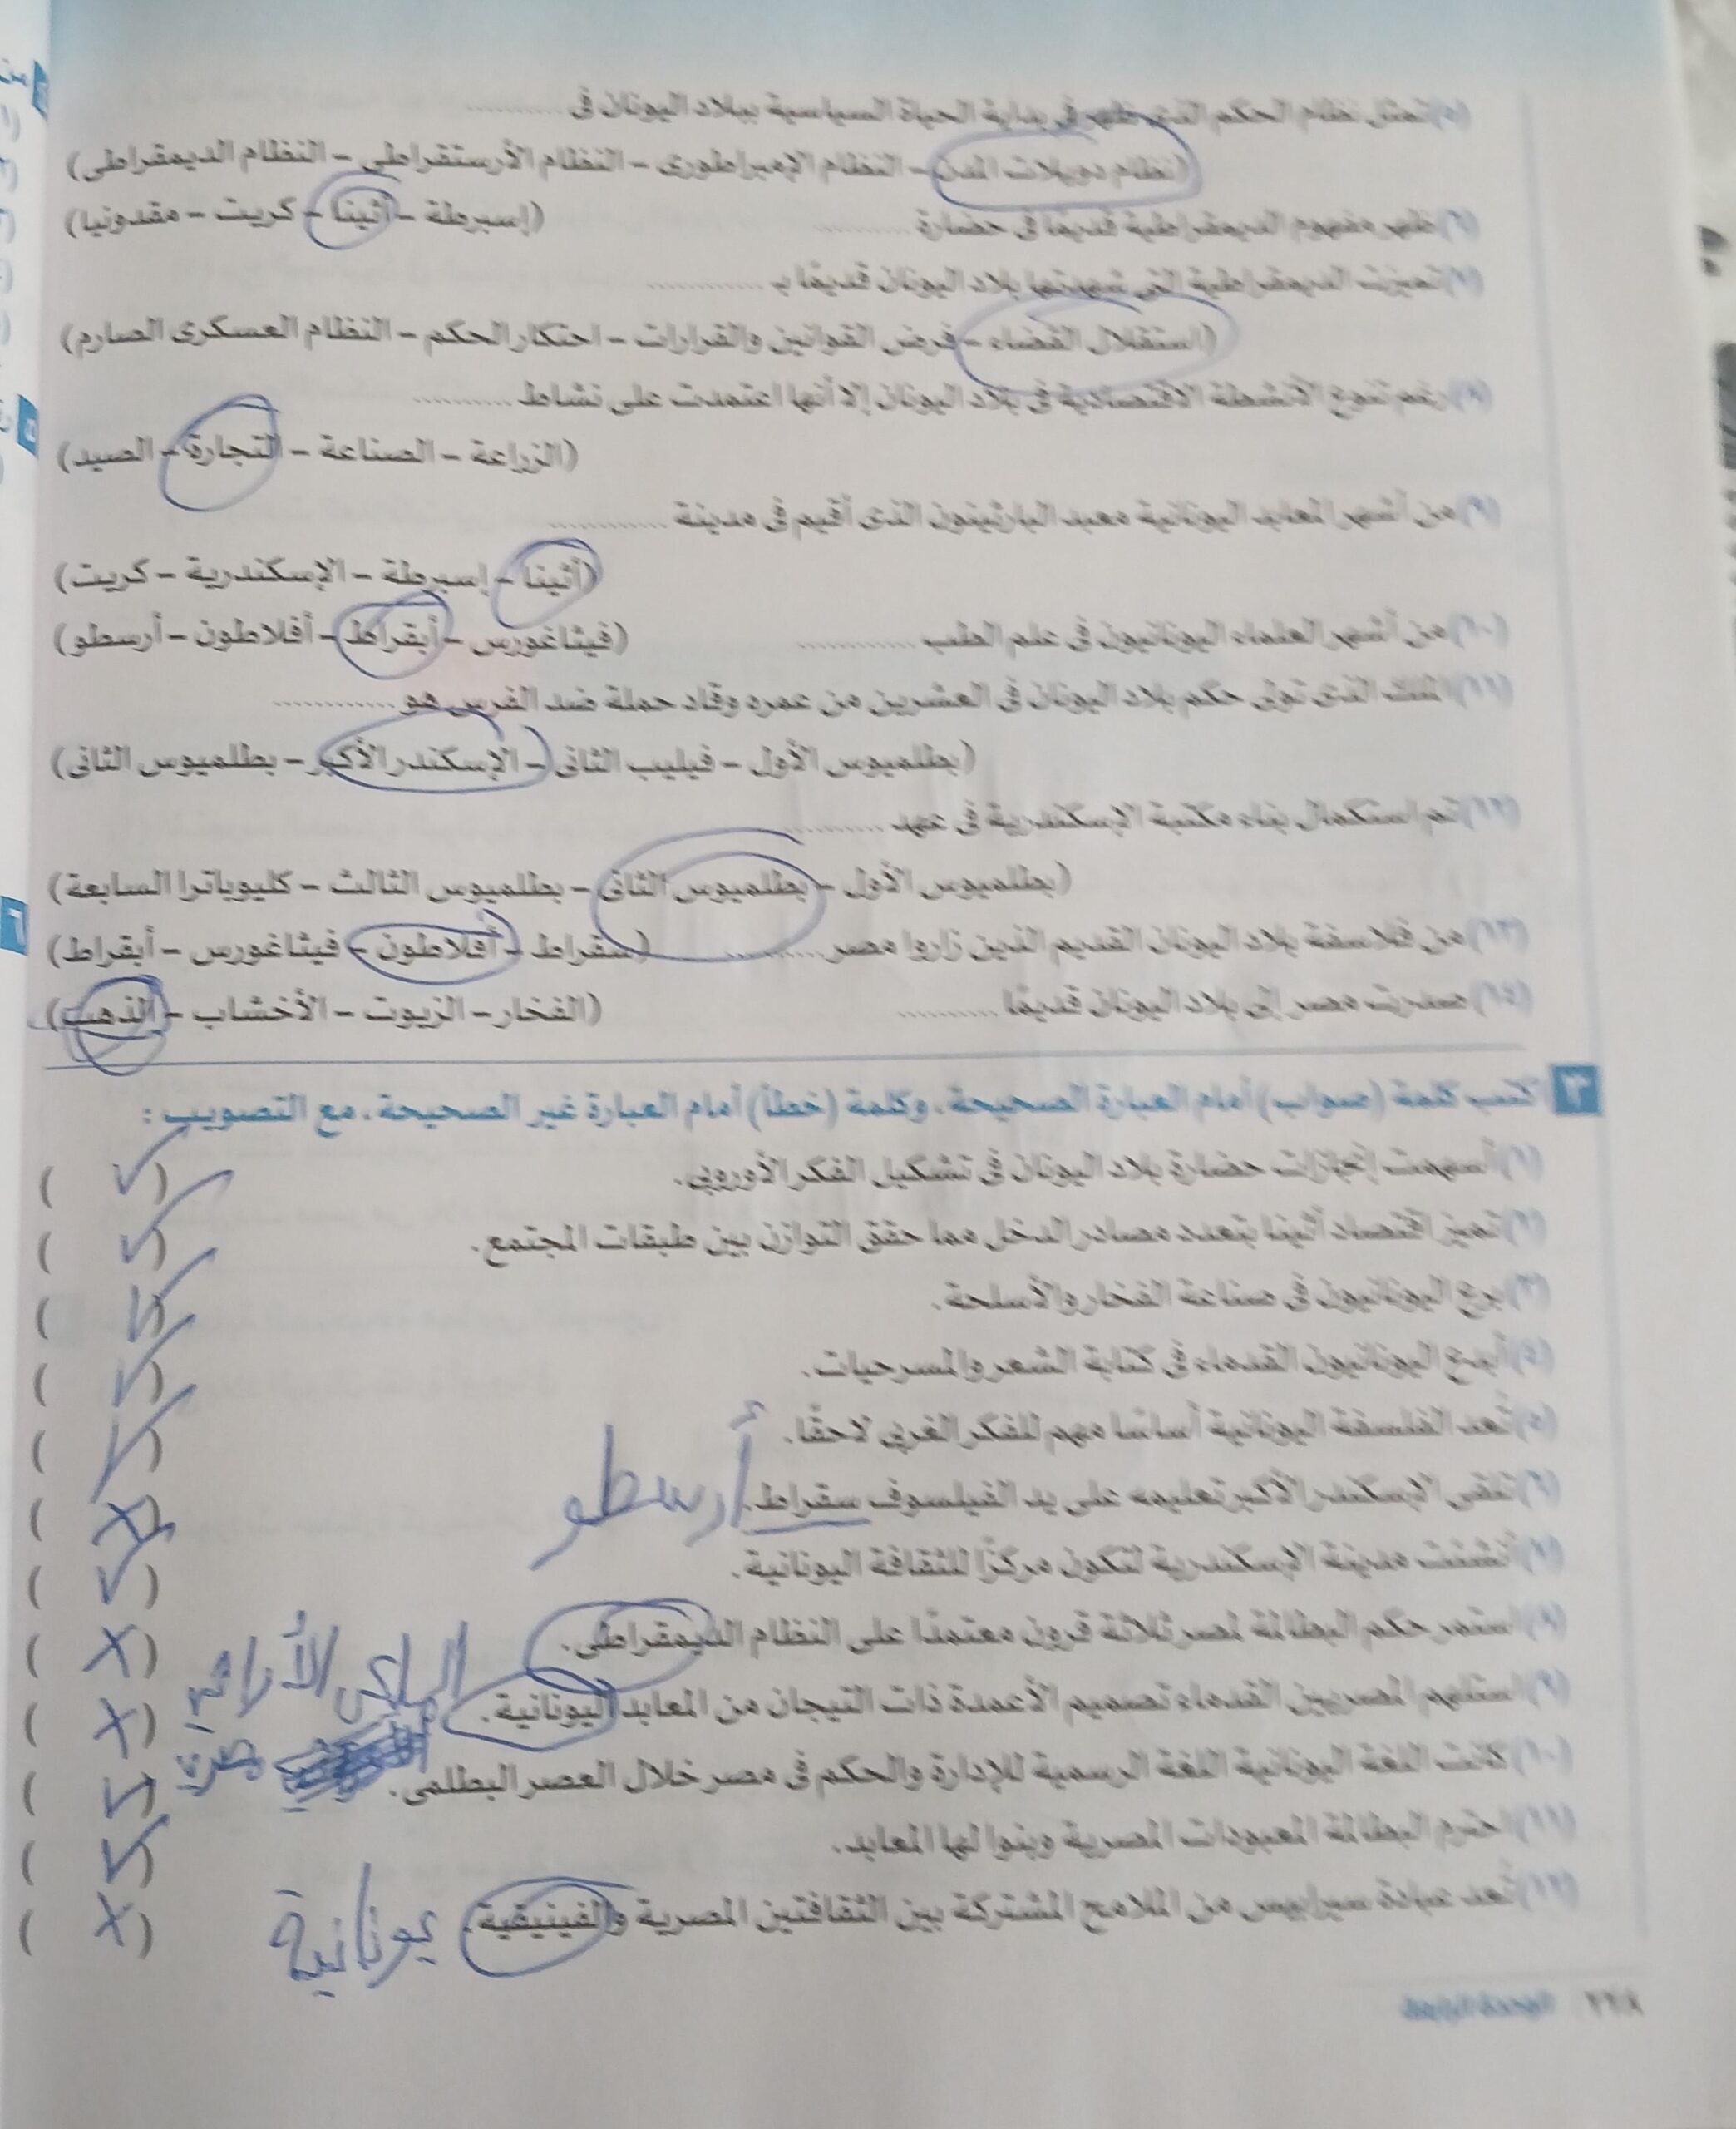 (٥) تمثل نظام الحكم الذى ظهر فى بداية الحياة السياسية ببلاد اليونان فى ............
(نظام دويلات المدن – النظام الإمبراطورى – النظام الأرستقراطى – النظام الديمقراطى)
(٦) ظهر مفهوم الديمقراطية قديمًا فى حضارة ............ (إسبرطة – أثينا – كريت – مقدونيا)
(٧) تميزت الديمقراطية التى شهدتها بلاد اليونان قديمًا بـ ............
(استقلال القضاء – فرض القوانين والقرارات – احتكار الحكم – النظام العسكرى الصارم)
(٨) رغم تنوع الأنشطة الاقتصادية فى بلاد اليونان إلا أنها اعتمدت على نشاط ............
(الزراعة – الصناعة – التجارة – الصيد)
(٩) من أشهر المعابد اليونانية معبد البارثينون الذى أقيم فى مدينة ............
(أثينا – إسبرطة – الإسكندرية – كريت)
(١٠) من أشهر العلماء اليونانيون فى علم الطب ............ (فيثاغورس – أبقراط – أفلاطون – أرسطو)
(١١) الملك الذى تولى حكم بلاد اليونان فى العشرين من عمره وقاد حملة ضد الفرس هو ............
(بطلميوس الأول – فيليب الثانى – الإسكندر الأكبر – بطلميوس الثانى)
(١٢) تم استكمال بناء مكتبة الإسكندرية فى عهد ............
(بطلميوس الأول – بطلميوس الثانى – بطلميوس الثالث – كليوباترا السابعة)
(١٣) من فلاسفة بلاد اليونان القديم الذين زاروا مصر ............ (سقراط – أفلاطون – فيثاغورس – أبقراط)
(١٤) صدرت مصر إلى بلاد اليونان قديمًا ............ (الفخار – الزيوت – الأخشاب – الذهب)
٣ اكتب كلمة (صواب) أمام العبارة الصحيحة، وكلمة (خطأ) أمام العبارة غير الصحيحة، مع التصويب :
(١) أسهمت إنجازات حضارة بلاد اليونان فى تشكيل الفكر الأوروبى. (✓)
(٢) تميز اقتصاد أثينا بتعدد مصادر الدخل مما حقق التوازن بين طبقات المجتمع. (✓)
(٣) برع اليونانيون فى صناعة الفخار والأسلحة. (✓)
(٤) أبدع اليونانيون القدماء فى كتابة الشعر والمسرحيات. (✓)
(٥) تُعد الفلسفة اليونانية أساسًا مهم للفكر الغربى لاحقًا. (✓)
(٦) تلقى الإسكندر الأكبر تعليمه على يد الفيلسوف سقراط. أرسطو (X)
(٧) أنشئت مدينة الإسكندرية لتكون مركزًا للثقافة اليونانية. (✓)
(٨) استمر حكم البطالمة لمصر ثلاثة قرون معتمدًا على النظام الديمقراطى. (X)
(٩) استلهم المصريين القدماء تصميم الأعمدة ذات التيجان من المعابد اليونانية. (X)
(١٠) كانت اللغة اليونانية اللغة الرسمية للإدارة والحكم فى مصر خلال العصر البطلمى. (✓)
(١١) احترم البطالمة المعبودات المصرية وبنوا لها المعابد. (✓)
(١٢) تُعد عبادة سيرابيس من الملامح المشتركة بين الثقافتين المصرية والفينيقية. يونانية (X)
٢٢٨ الوحدة الرابعة